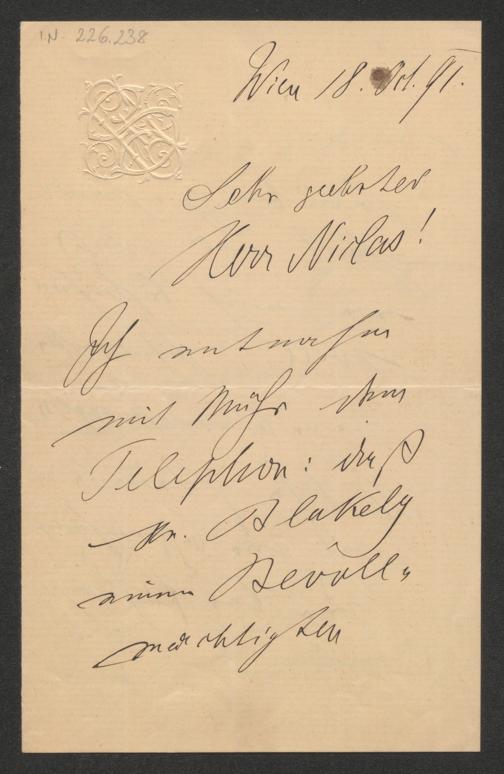 I.N. 226.238
Wien 18. Oct. 91.
Sehr geehrter
Herr Niclas!
Ich entnahm
mit Mühe dem
Telephon: daß
Mr. Blakely
einen Bevoll„
mächtigten